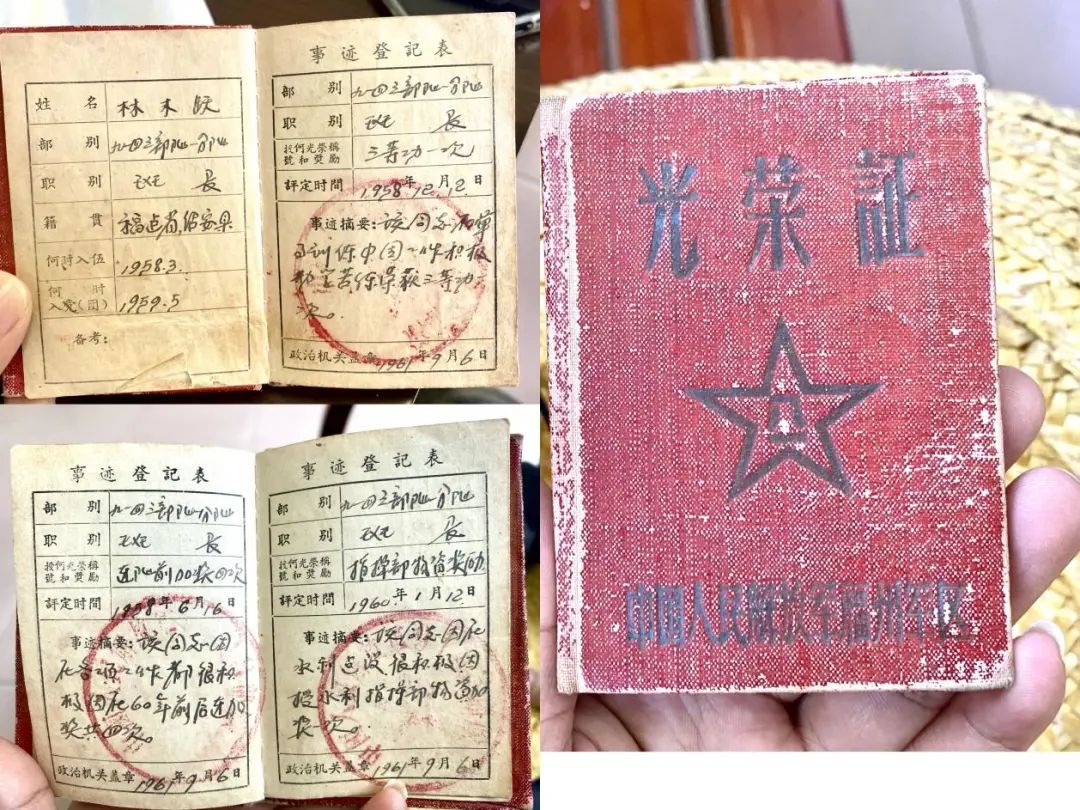 姓名 林木
部别 九一四三部队一分队
职别 班 長
籍貫 福建省,诏安県
何时入伍 1958.3.
何时入党(团) 1959.5
备考:
事迹登記表
部别 九一四三部队一分队
职别 班 長
授何光荣稱號和奬勵 三等功一次
評定时間 1958年12月12日
事迹摘要:该同志在軍
事训练中因工作积极
劳苦保荣获三等功一
次。
政治机关盖章 1961年9月6日
事迹登記表
部别 九一四三部队一分队
职别 班 長
授何光荣稱號和奬勵 连队前加奖四次
評定时間 1958年6月16日
事迹摘要:该同志因
在各项工作都很积
极因在60年前后连加
奖共四次。
政治机关盖章 1961年9月6日
事迹登記表
部别 九一四三部队一分队
职别 班 長
授何光荣稱號和奬勵 指揮部物资奖励
評定时間 1960年1月12日
事迹摘要:该同志因在
水利建设很积极因
授水利指揮部物资加
奖一次。
政治机关盖章 1961年9月6日
光荣証
八一
中国人民解放军福州军区